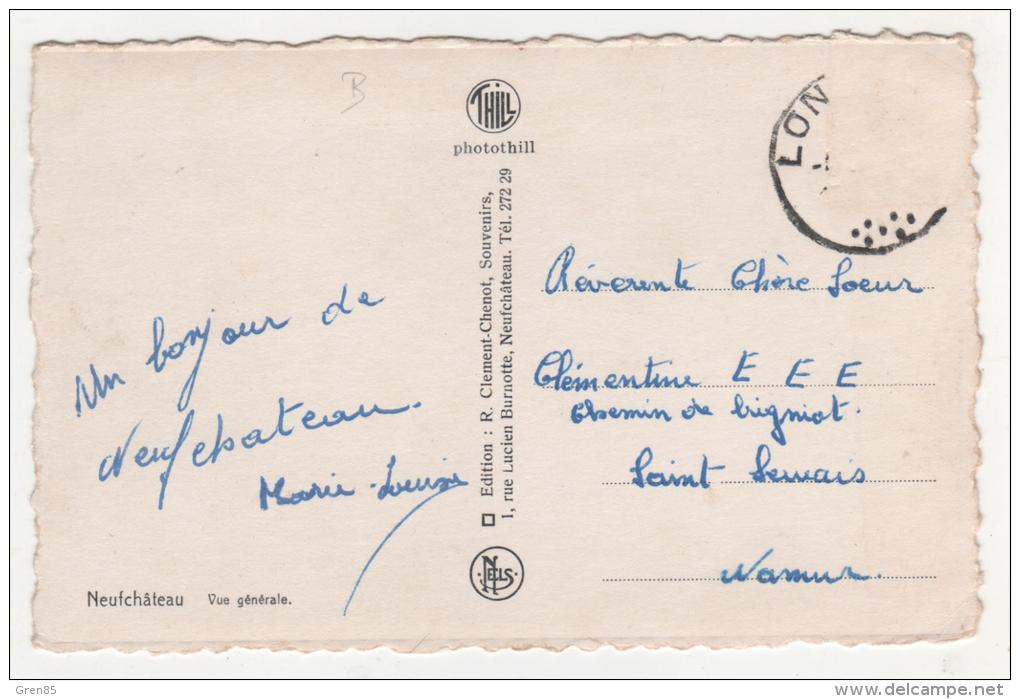 B
THILL
photothill
LON
Un bonjour de
Neufchateau.
Marie-Louise
Edition : R. Clement-Chenot, Souvenirs,
1, rue Lucien Burnotte, Neufchâteau. Tél. 272 29
NELS
Révérente Chère Soeur
Clémentine E E E
Chemin de
Saint Servais
Namur.
Neufchâteau Vue générale.
Gren85
www.delcampe.net